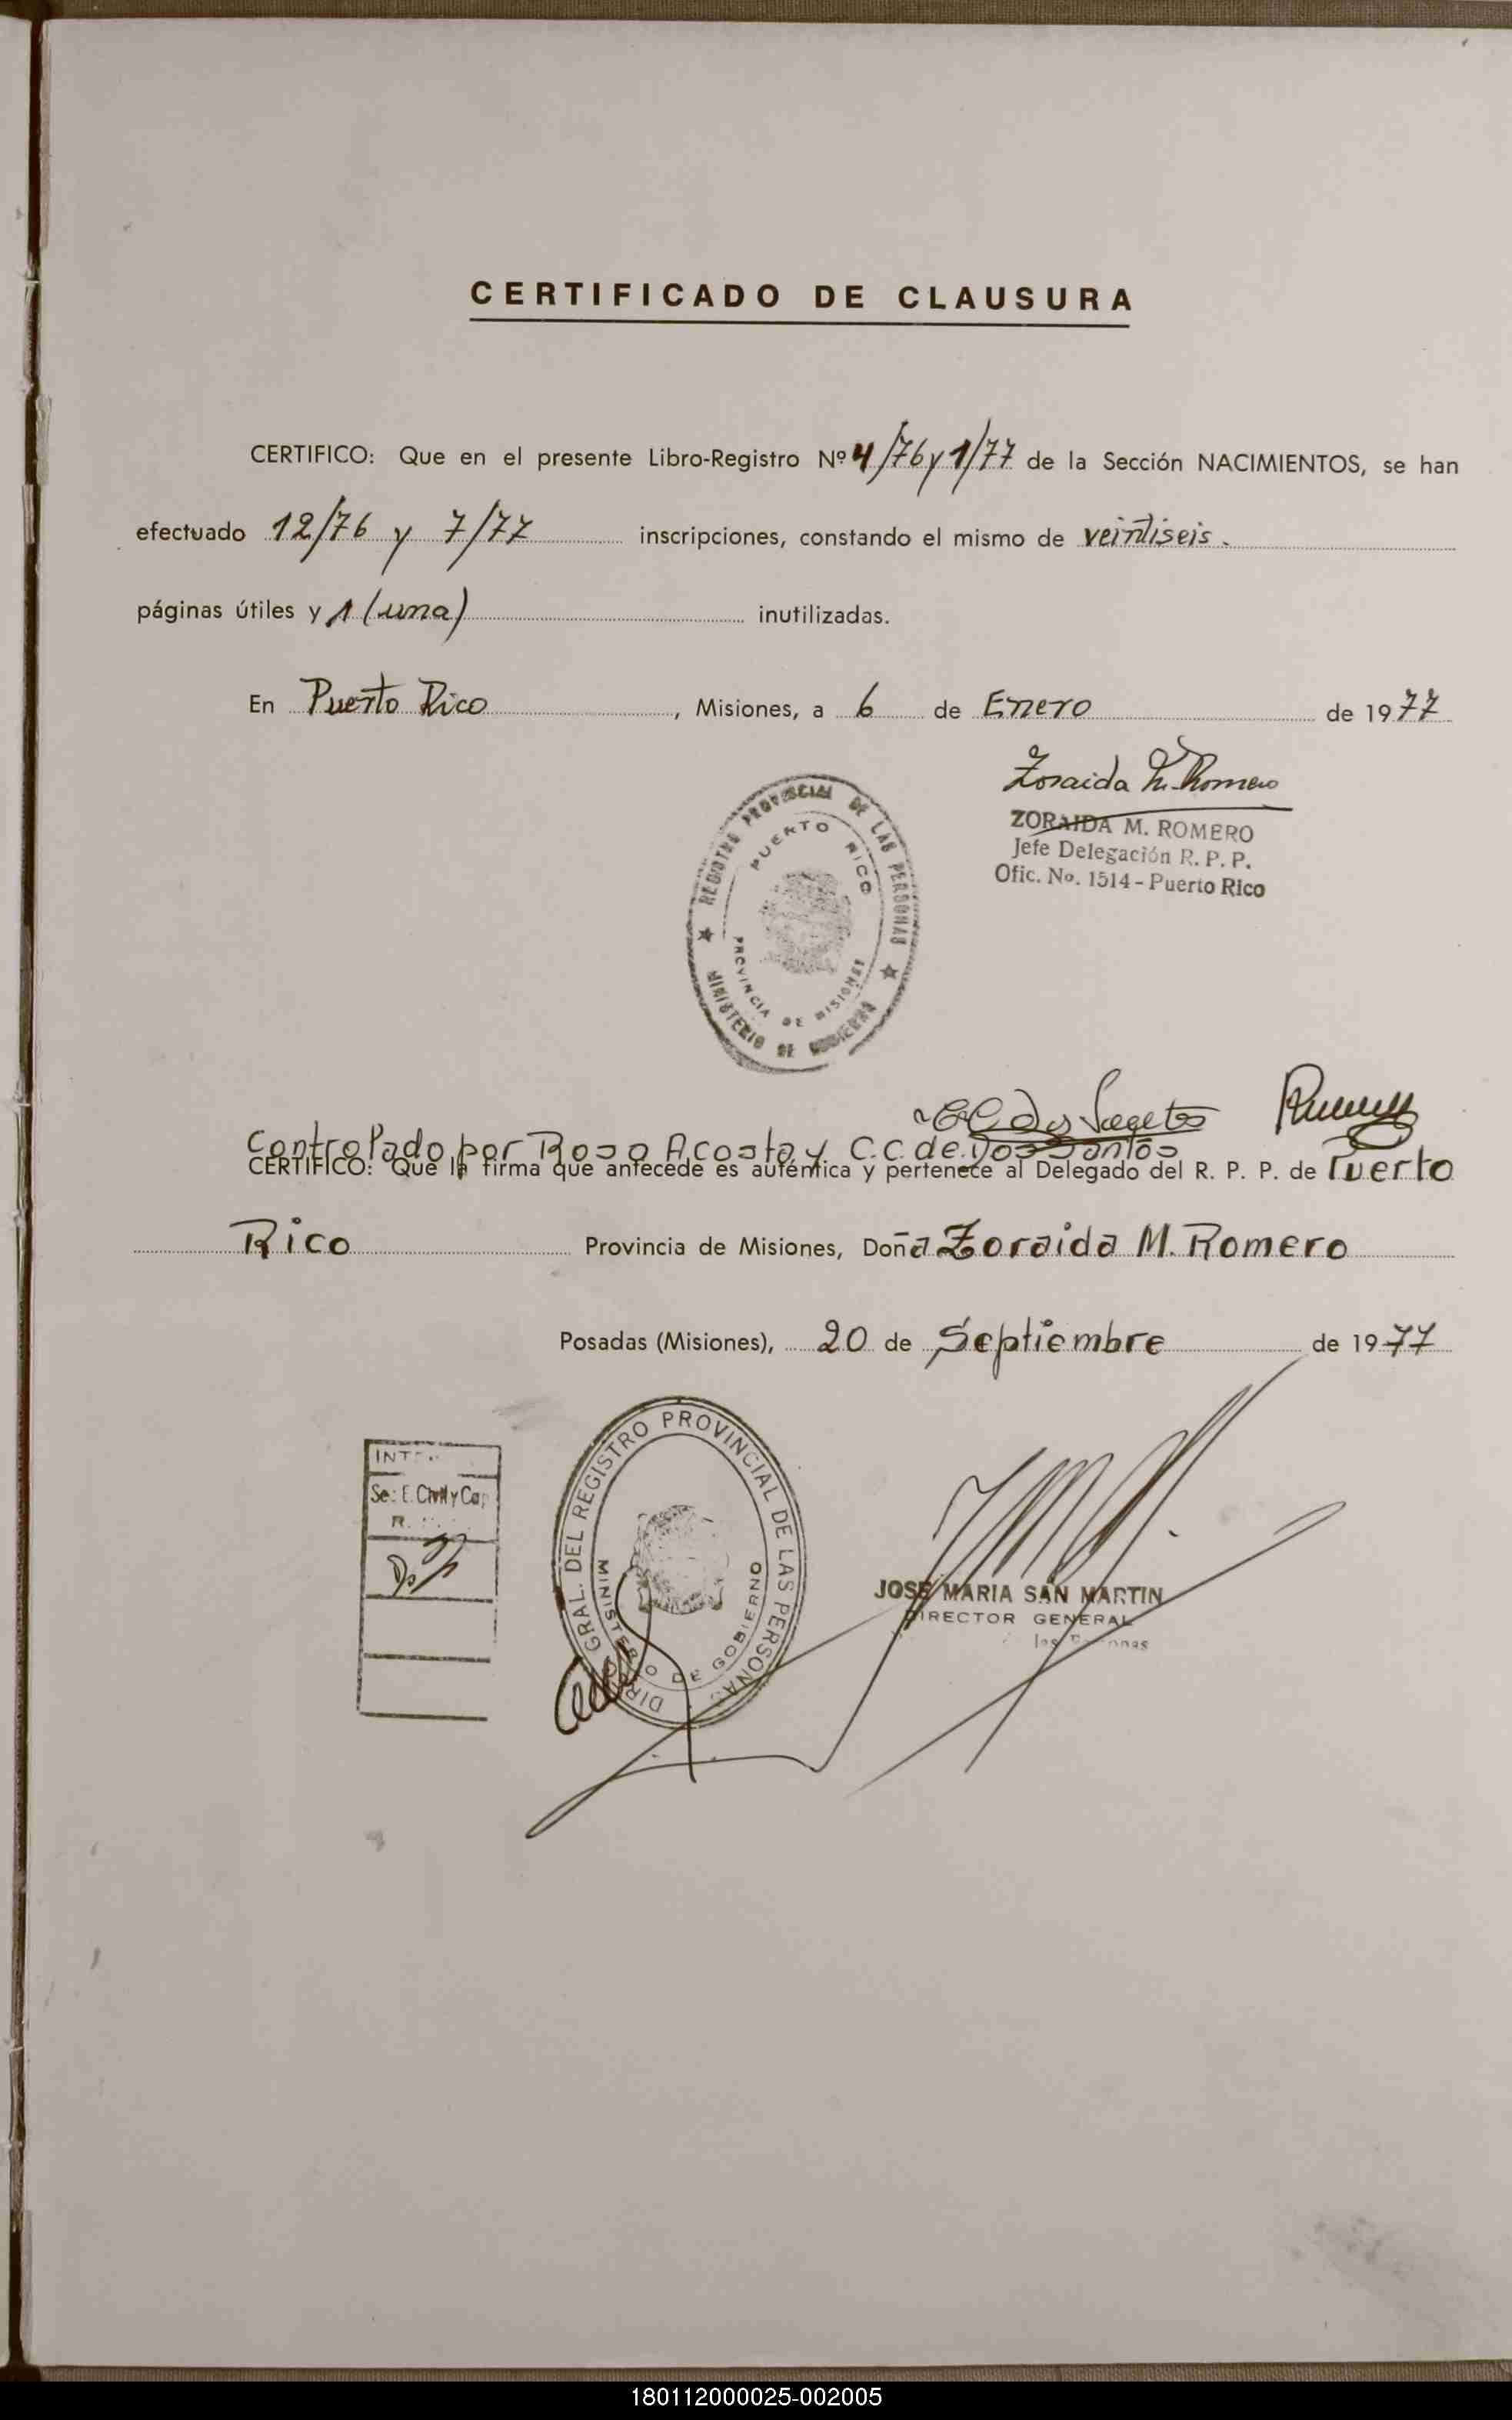 CERTIFICADO DE CLAUSURA
CERTIFICO: Que en el presente Libro-Registro Nº 4/76 y 1/77 de la Sección NACIMIENTOS, se han
efectuado 12/76 y 7/77 inscripciones, constando el mismo de veintiseis.
páginas útiles y 1 (una) inutilizadas.
En Puerto Rico, Misiones, a 6 de Enero de 1977
Zoraida M. Romero
ZORAIDA M. ROMERO
Jefe Delegación R. P. P.
Ofic. No. 1514 - Puerto Rico
REGISTRO PROVINCIAL DE LAS PERSONAS
PUERTO RICO
PROVINCIA DE MISIONES
MINISTERIO DE GOBIERNO
Controlado por Rosa Acosta y C.C. de Dos Santos
CERTIFICO: Que la firma que antecede es auténtica y pertenece al Delegado del R. P. P. de Puerto
Rico Provincia de Misiones, Doña Zoraida M. Romero
Posadas (Misiones), 20 de Septiembre de 1977
Se: E. Civil y Cap
R.
DIR. GRAL. DEL REGISTRO PROVINCIAL DE LAS PERSONAS
MINISTERIO DE GOBIERNO
JOSE MARIA SAN MARTIN
DIRECTOR GENERAL
180112000025-002005